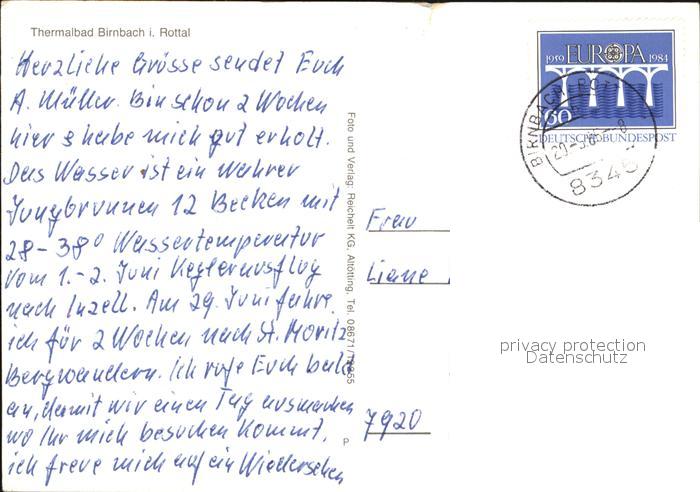 Thermalbad Birnbach i. Rottal
Herzliche Grüsse sendet Euch
A. Müller. Bin schon 2 Wochen
hier & habe mich gut erholt.
Das Wasser ist ein wahrer
Jungbrunnen 12 Becken mit
28-38° Wassertemperatur
Vom 1.-2. Juni Keglerausflug
nach Inzell. Am 29. Juni fahre
ich für 2 Wochen nach St. Moritz
Bergwandern. Ich rufe Euch bald
an, damit wir einen Tag ausmachen
wo Ihr mich besuchen kommt,
ich freue mich auf ein Wiedersehen
Foto und Verlag: Reichelt KG, Altötting, Tel. 08671
P
1959 EUROPA 1984
60
DEUTSCHE BUNDESPOST
BIRNBACH, ROTT
8345
Frau
Liane
7920
privacy protection
Datenschutz